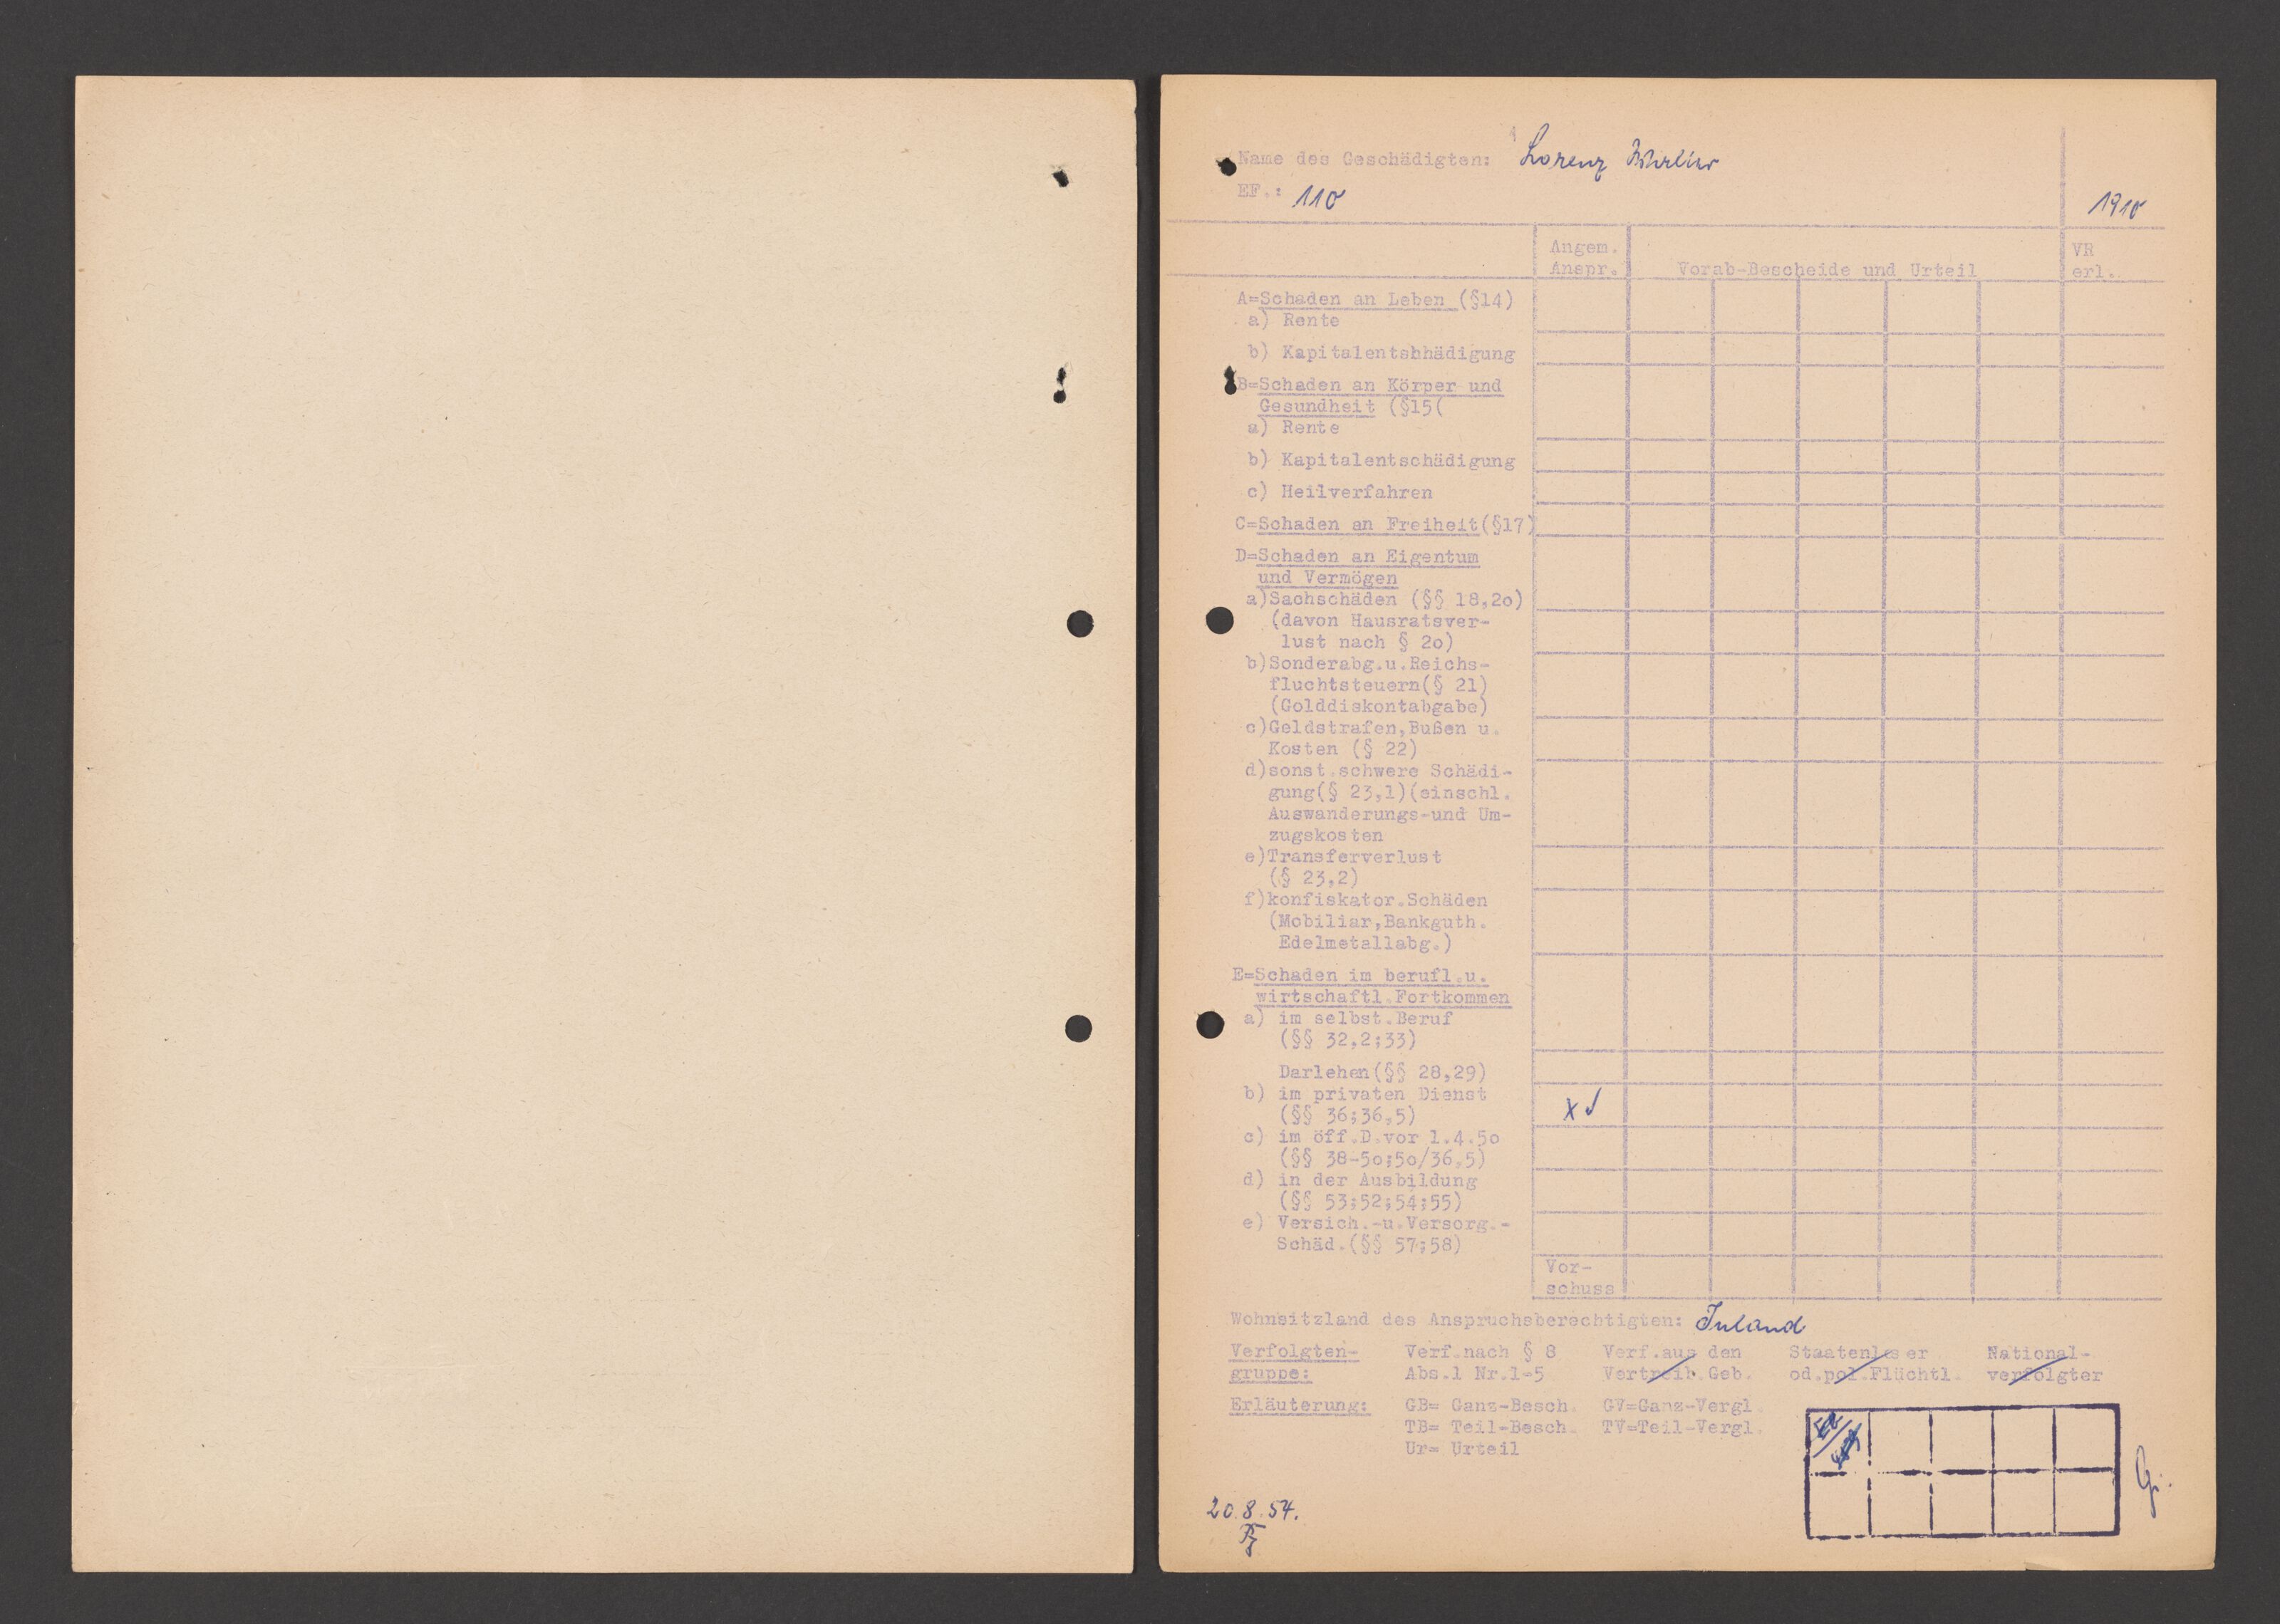 Name des Geschädigten: Lorenz
EF.: 110
1910
Angem. Anspr.
Vorab-Bescheide und Urteil
VR erl.
A=Schaden an Leben (§14)
a) Rente
b) Kapitalentshhädigung
B=Schaden an Körper und
Gesundheit (§15(
a) Rente
b) Kapitalentschädigung
c) Heilverfahren
C=Schaden an Freiheit(§17)
D=Schaden an Eigentum
und Vermögen
a)Sachschäden (§§ 18,2o)
(davon Hausratsver-
lust nach § 2o)
b)Sonderabg.u.Reichs-
fluchtsteuern(§ 21)
(Golddiskontabgabe)
c)Geldstrafen,Bußen u.
Kosten (§ 22)
d)sonst.schwere Schädi-
gung(§ 23,1)(einschl.
Auswanderungs-und Um-
zugskosten
e)Transferverlust
(§ 23,2)
f)konfiskator.Schäden
(Mobiliar,Bankguth.
Edelmetallabg.)
E=Schaden im berufl.u.
wirtschaftl.Fortkommen
a) im selbst.Beruf
(§§ 32,2;33)
Darlehen(§§ 28,29)
b) im privaten Dienst
(§§ 36;36,5) x
c) im öff.D.vor 1.4.5o
(§§ 38-5o;5o/36,5)
d) in der Ausbildung
(§§ 53;52;54;55)
e) Versich.-u.Versorg.-
Schäd.(§§ 57;58)
Vor-
schuss
Wohnsitzland des Anspruchsberechtigten: Inland
Verfolgten- Verf.nach § 8 Verf.aus den Staatenloser National-
gruppe: Abs.1 Nr.1-5 Vertreib.Geb. od.pol.Flüchtl. verfolgter
Erläuterung: GB= Ganz-Besch. GV=Ganz-Vergl.
TB= Teil-Besch. TV=Teil-Vergl.
Ur= Urteil
20.8.54.